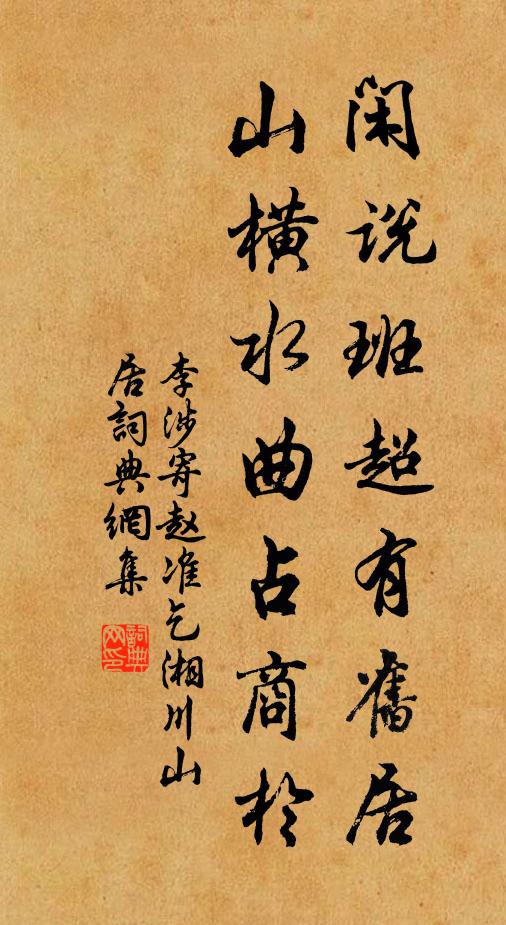 闲说班超有舊居
山横水曲占商於
李涉寄赵准乞湘川山
居詞典網集
詞典网印